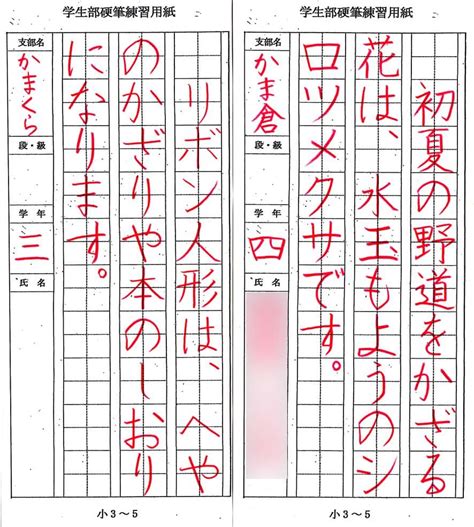 学生部硬筆練習用紙
初夏の野道をかざる
花は、水玉もようのシ
ロツメクサです。
支部名
かま倉
段・級
学年
四
氏名
小3～5
学生部硬筆練習用紙
リボン人形は、へや
のかざりや本のしおり
になります。
支部名
かまくら
段・級
学年
三
氏名
小3～5